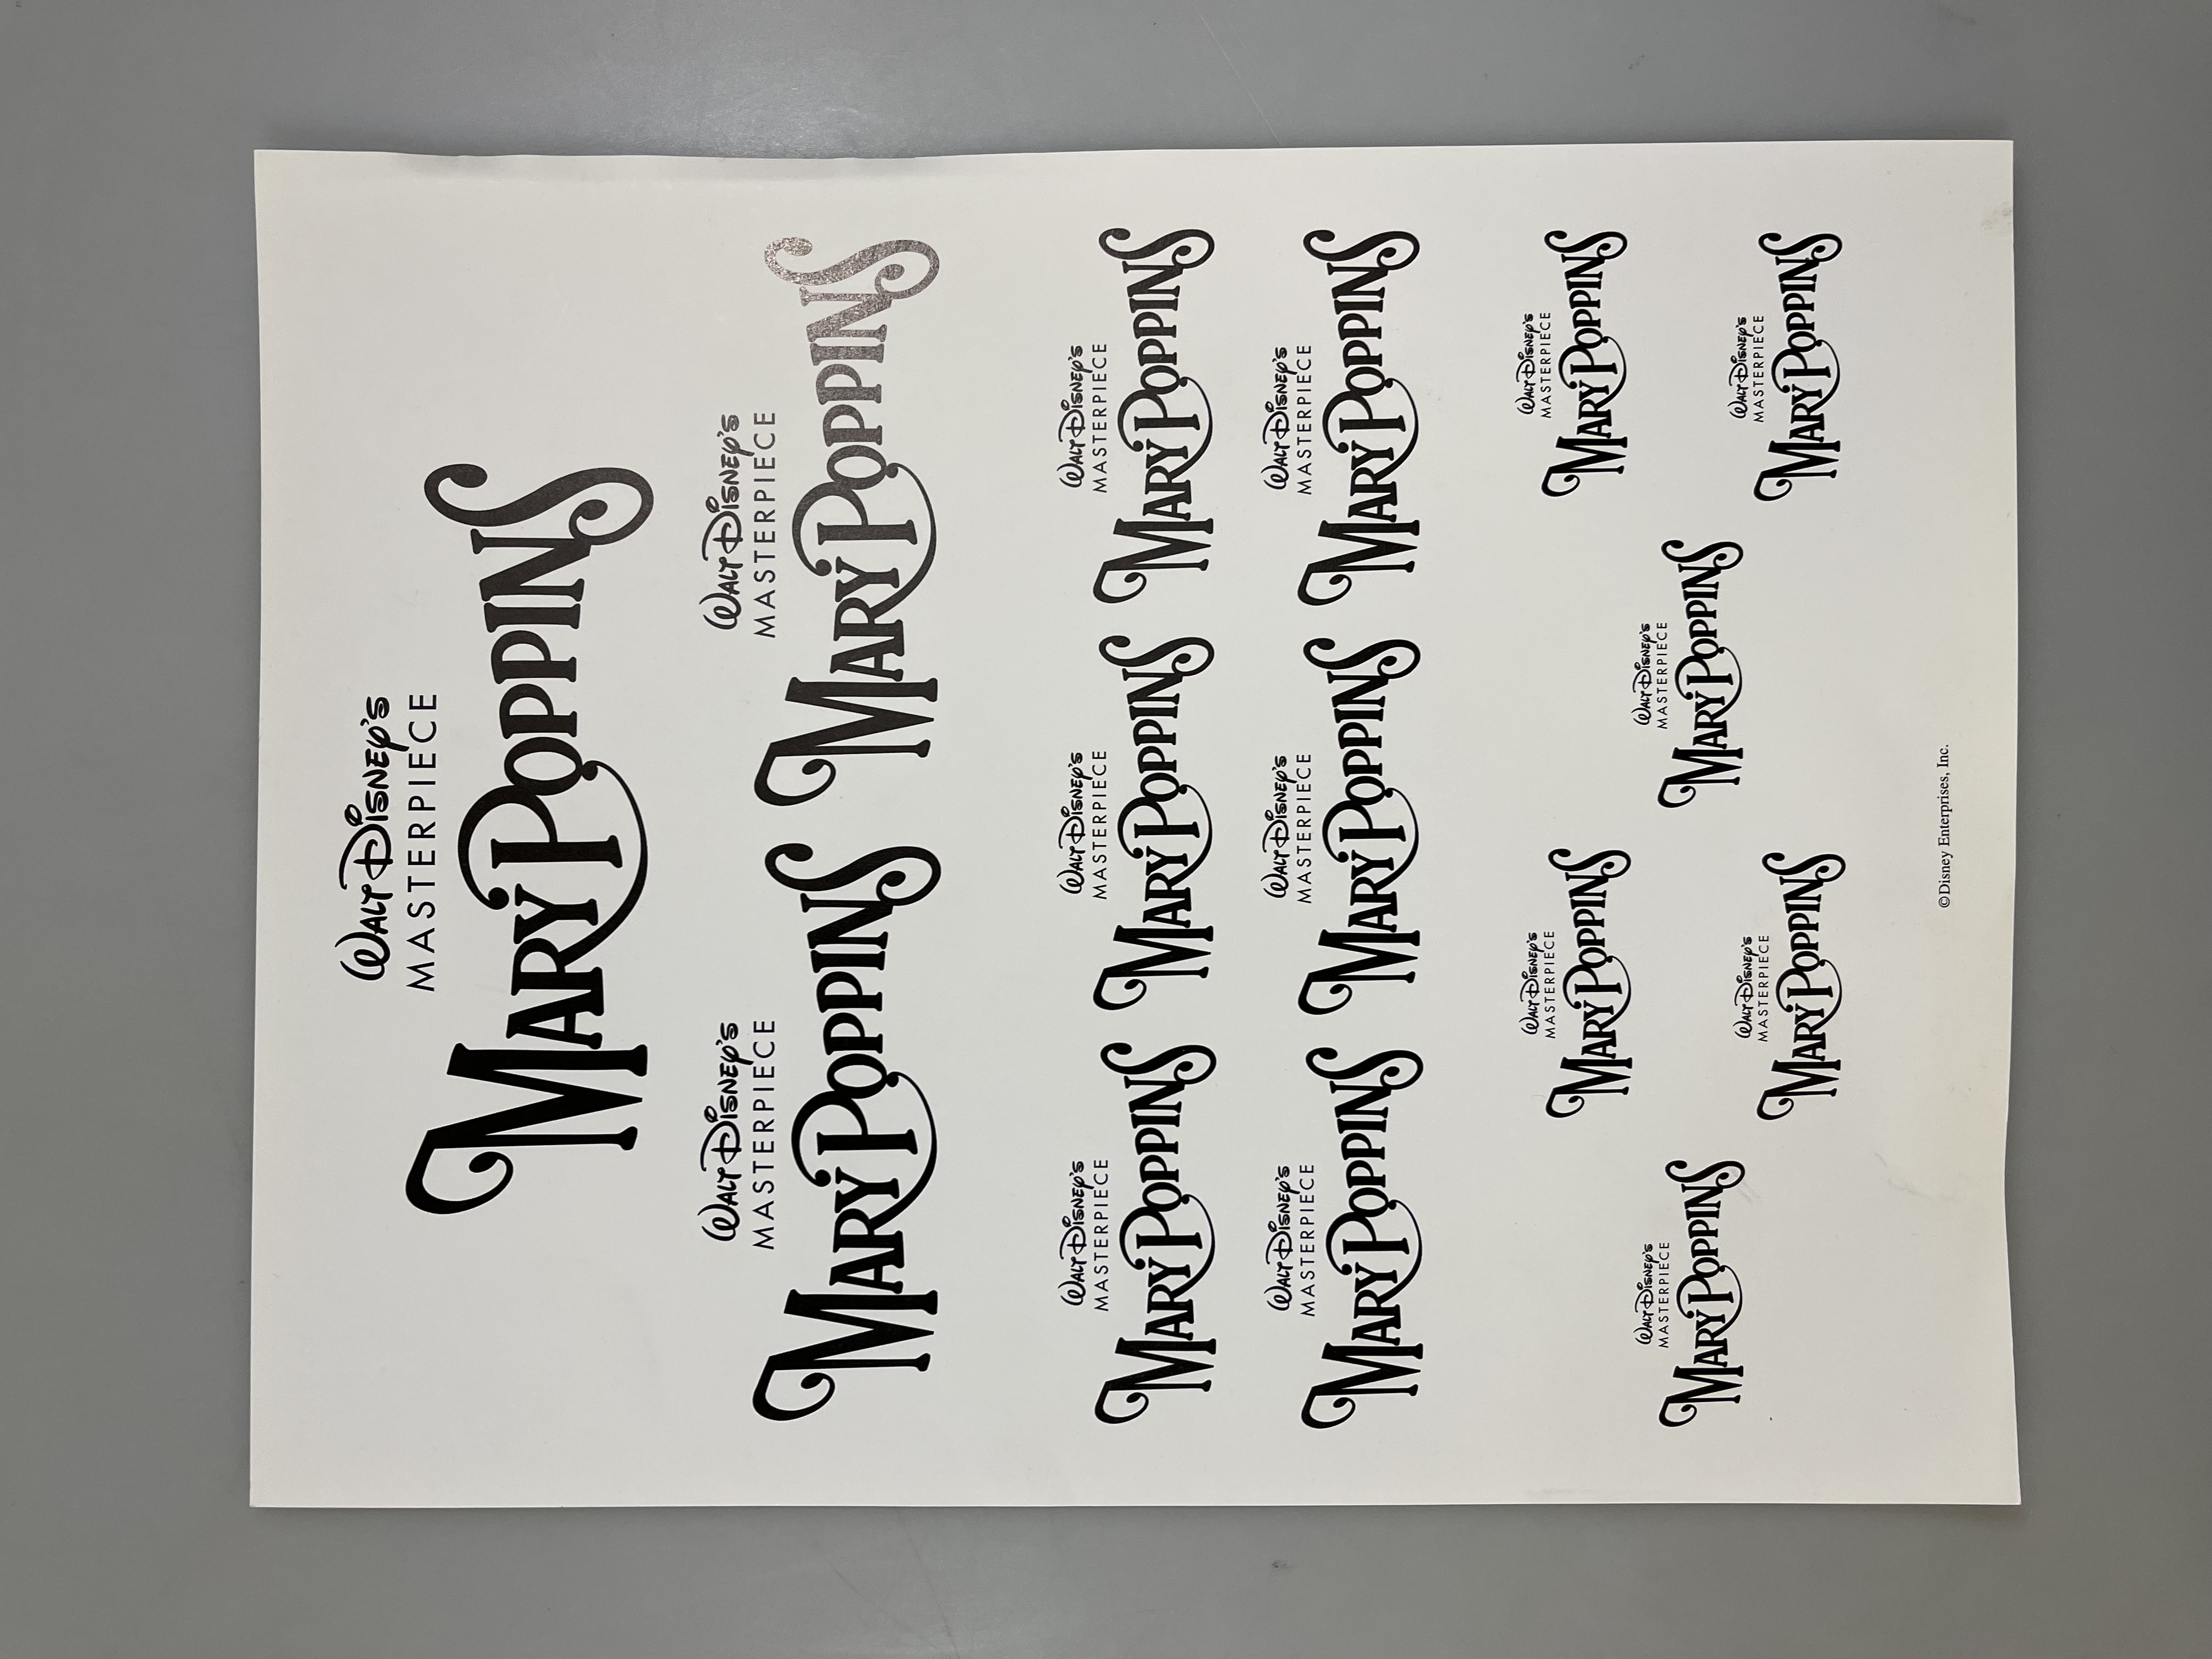 WALT DISNEY'S
MASTERPIECE
MARY POPPINS
WALT DISNEY'S
MASTERPIECE
MARY POPPINS
WALT DISNEY'S
MASTERPIECE
MARY POPPINS
WALT DISNEY'S
MASTERPIECE
MARY POPPINS
WALT DISNEY'S
MASTERPIECE
MARY POPPINS
WALT DISNEY'S
MASTERPIECE
MARY POPPINS
WALT DISNEY'S
MASTERPIECE
MARY POPPINS
WALT DISNEY'S
MASTERPIECE
MARY POPPINS
WALT DISNEY'S
MASTERPIECE
MARY POPPINS
WALT DISNEY'S
MASTERPIECE
MARY POPPINS
WALT DISNEY'S
MASTERPIECE
MARY POPPINS
WALT DISNEY'S
MASTERPIECE
MARY POPPINS
WALT DISNEY'S
MASTERPIECE
MARY POPPINS
WALT DISNEY'S
MASTERPIECE
MARY POPPINS
WALT DISNEY'S
MASTERPIECE
MARY POPPINS
©Disney Enterprises, Inc.